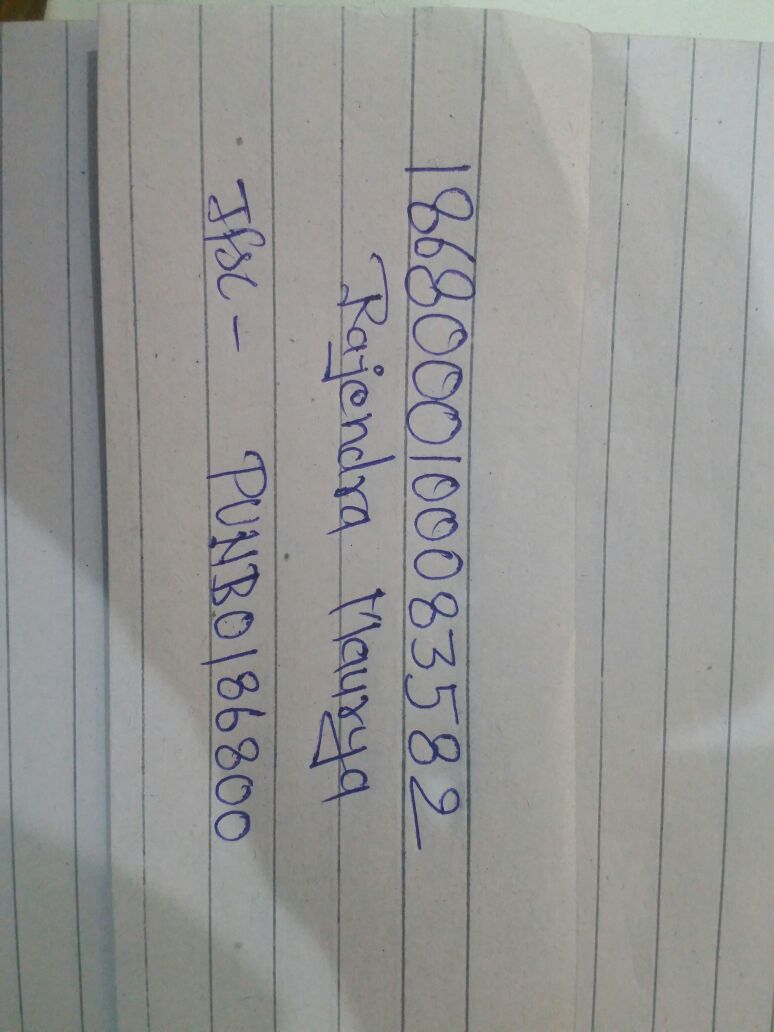 1868000100083582
Rajendra Maurya
Ifsc - PUNB0186800